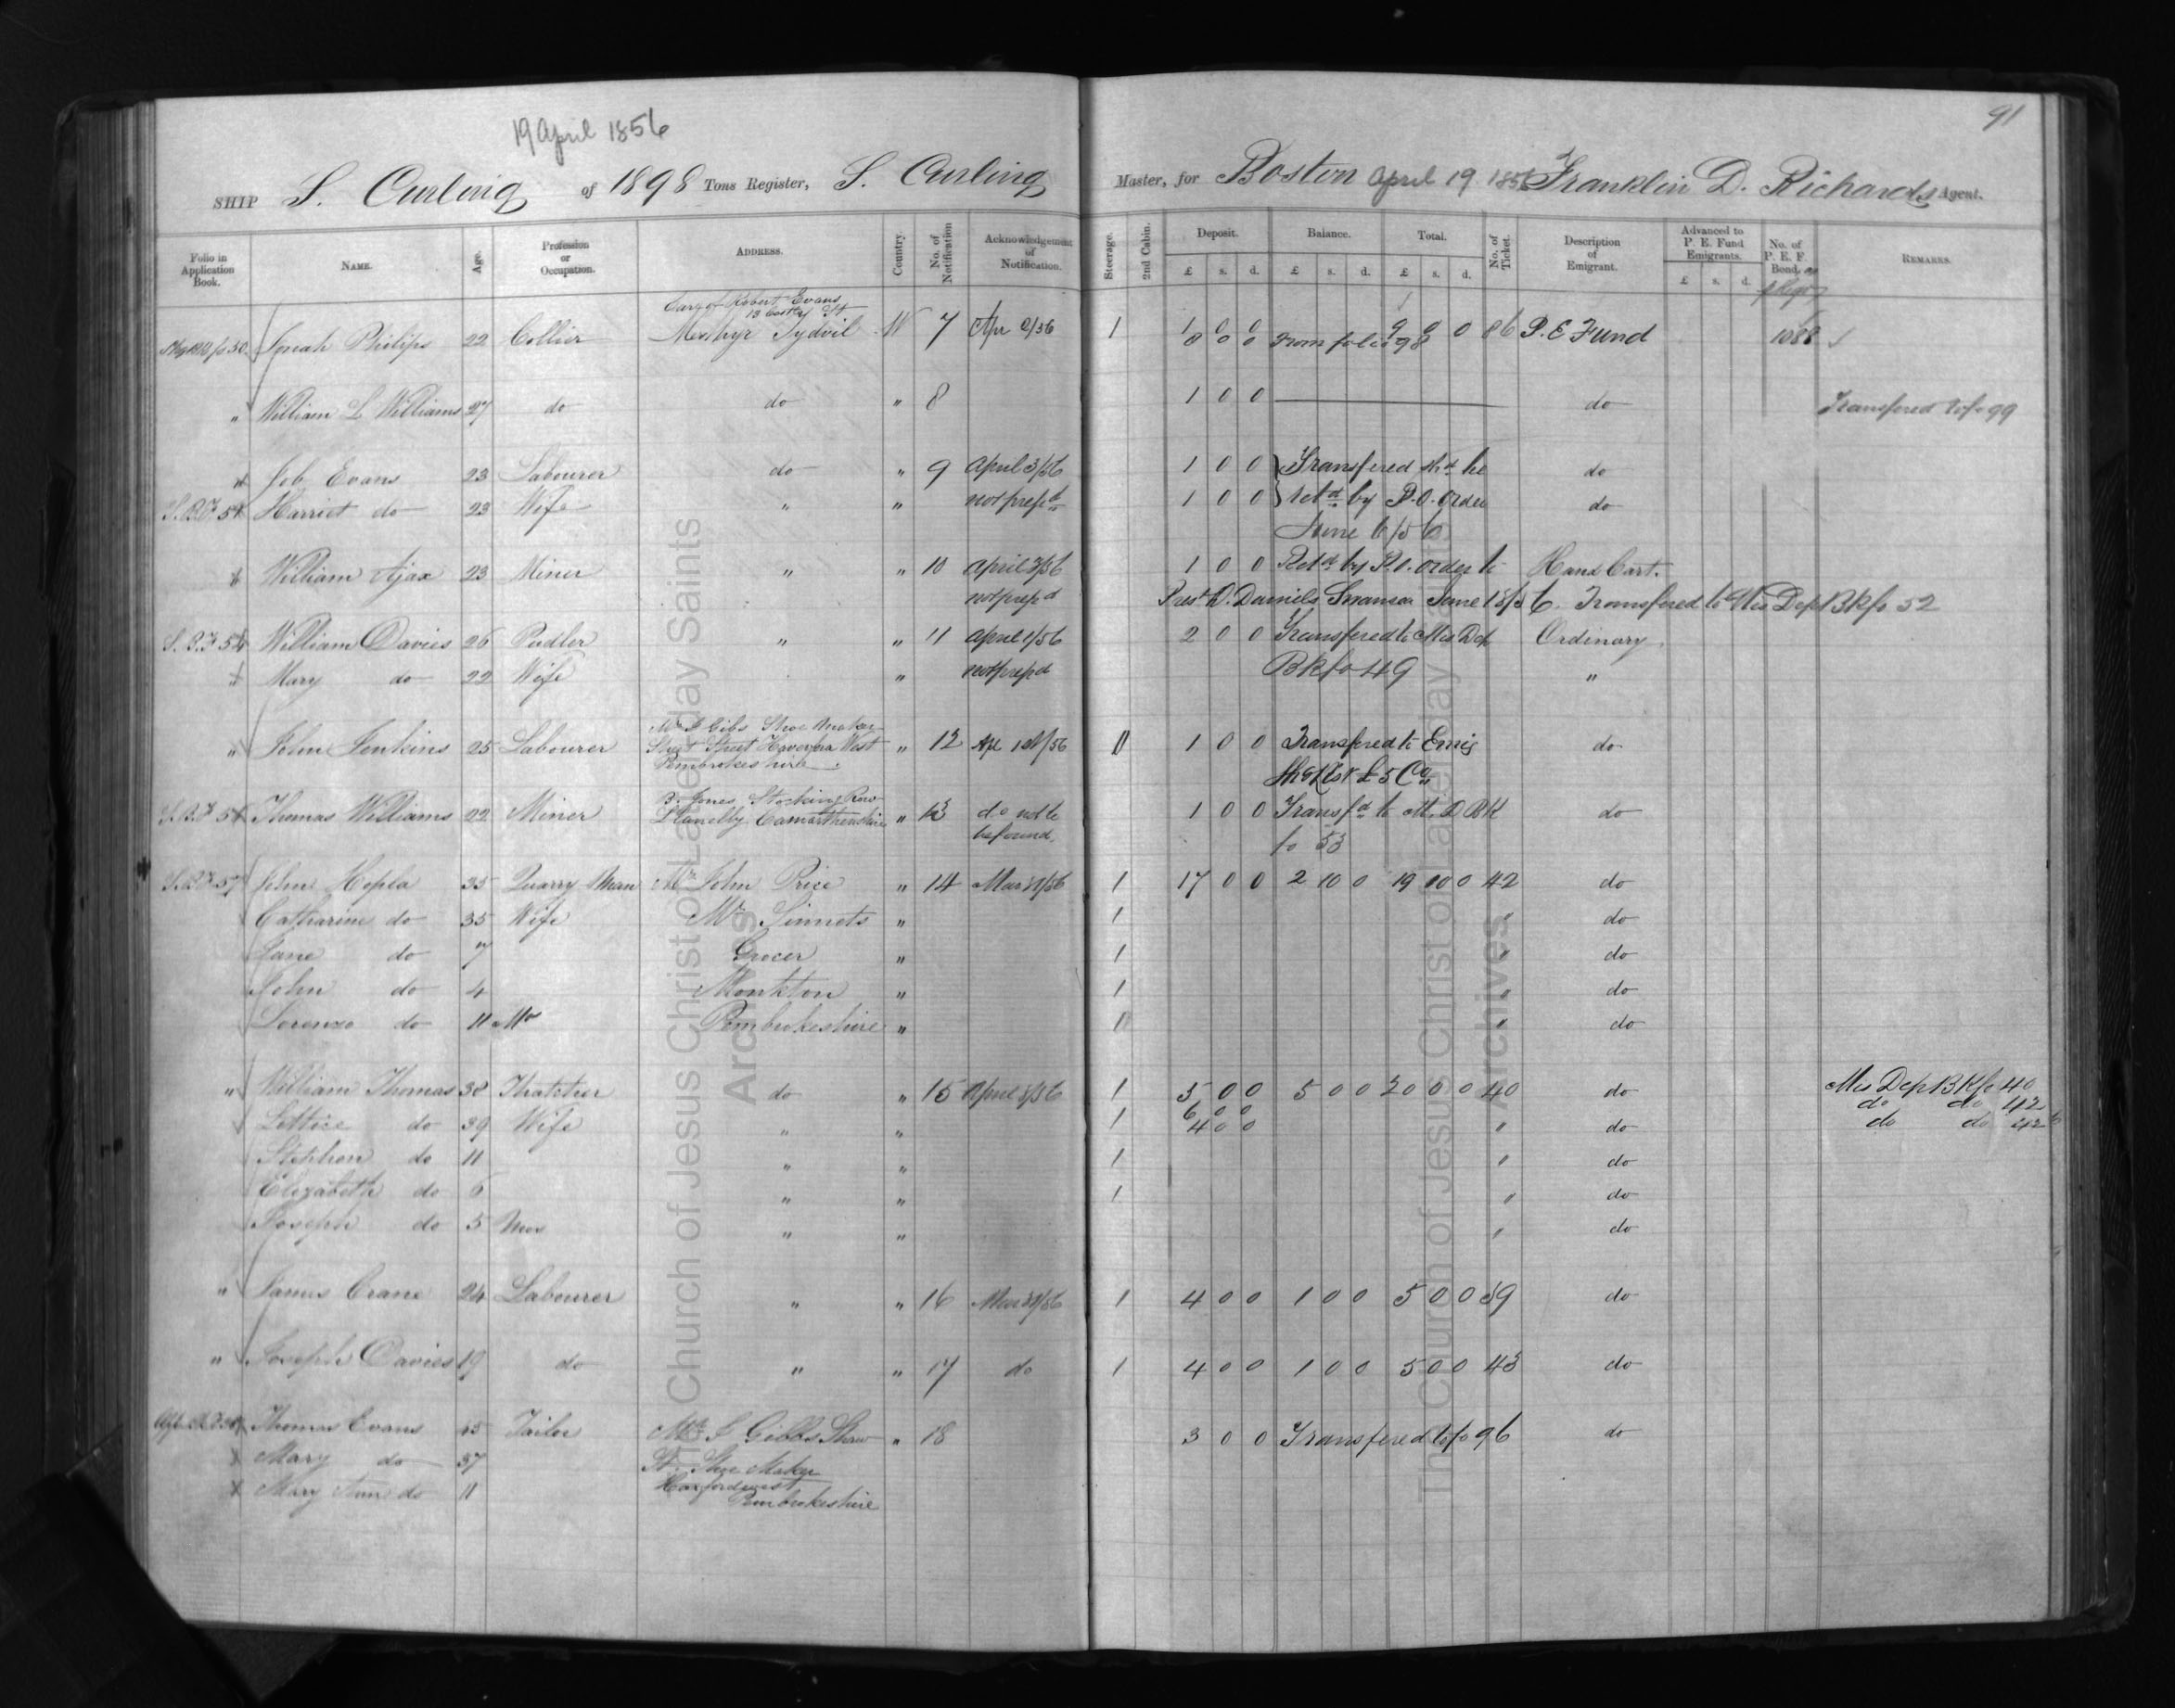 91
19 April 1856
SHIP S. Curling of 1898 Tons Register, S. Curling Master, for Boston April 19 1856 Franklin D. Richards Agent.
Folio in Application Book. NAME. Age. Profession or Occupation. ADDRESS. Country. No. of Notification Acknowledgement of Notification. Steerage. 2nd Cabin. Deposit. £ s. d. Balance. £ s. d. Total. £ s. d. No. of Ticket. Description of Emigrant. Advanced to P. E. Fund Emigrants. £ s. d. No. of P. E. F. Bond. REMARKS.
Care of Robert Evans
13 St
Philips 22 Collier Merthyr Tydvil W 7 Apr 2/56 1 1 0 0 9 0 0 86 P. E Fund 1088
8 0 0 From folio 98
" William L Williams 27 do do " 8 1 0 0 do Transfered to fo 99
Job Evans 23 Labourer do " 9 April 3/56 1 0 0 Transfered do
S. B. F 54 Harriet do 23 Wife " " not prepd 1 0 0 retd by P. O. Order do
June 6/56
William Ajax 23 Miner " " 10 April 3/56 1 0 0 Retd by P. O. Order to Hand Cart.
not prepd Prest D. Daniels Swansea June 18/56. Transfered to Mis Dep B k fo 52
S. B. F 54 William Davies 26 Pudler " " 11 April 1/56 2 0 0 Transfered to Mis Dep Ordinary
Mary do 22 Wife " not prepd B k fo 49 "
Mr Gibs Shoe Maker
" John Jenkins 25 Labourer Street Haverford West " 12 Apl 1st/56 1 0 0 Transfered to Emig do
Pembrokeshire. £5 Co
Jones Stocking Row
Thomas Williams 22 Miner Llanelly Camarthenshire " 13 do not to 1 0 0 Transfd to D BK do
be found. fo 53
S. B. F 57 John Hopla 35 Quarry Man Mr John Price " 14 Mar 31/56 1 17 0 0 2 10 0 19 10 0 42 do
Catharine do 35 Wife Mr Sinnets " 1 " do
Jane do 7 Grocer " 1 " do
John do 4 Monkton " 1 " do
Lorenzo do 11 Mo Pembrokeshire " " do
" William Thomas 38 Thatcher do " 15 April 3/56 1 5 0 0 5 0 0 20 0 0 40 do Mis Dep B K fo 40
6 0 0 do do 42
Lettice do 39 Wife " " 1 4 0 0 " do do do 42
Stephen do 11 " " 1 " do
Elizabeth do 6 " " 1 " do
Joseph do 5 Mos " " " do
" James Crane 24 Labourer " " 16 Mar 31/56 1 4 0 0 1 0 0 5 0 0 39 do
" Joseph Davies 19 do " " 17 do 1 4 0 0 1 0 0 5 0 0 43 do
Thomas Evans 45 Tailor Gibbs " 18 3 0 0 Transfered to fo 96 do
Mary do 37 St. Shoe Maker
Mary Ann do 11
Pembrokeshire
The Church of Jesus Christ of Latter-day Saints
Archives
The Church of Jesus Christ of Latter-day Saints
Archives